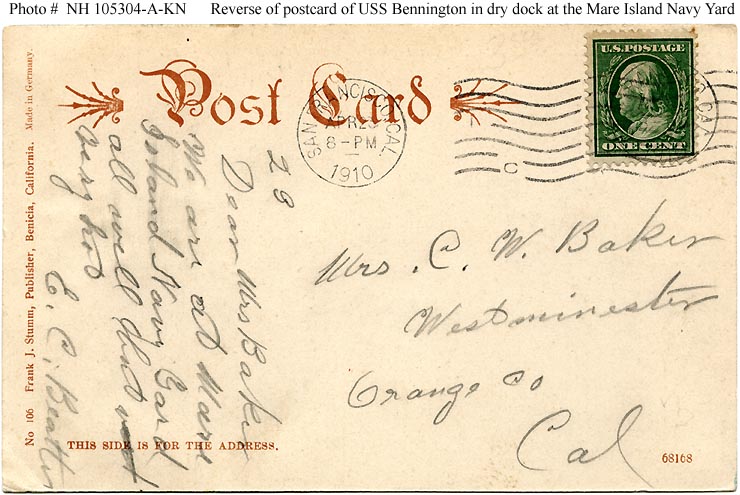 Photo # NH 105304-A-KN Reverse of postcard of USS Bennington in dry dock at the Mare Island Navy Yard
Post Card
SAN FRANCISCO, CAL.
APR 28
8-PM
1910
C
U.S. POSTAGE
ONE CENT
No 106 Frank J. Stumm, Publisher, Benicia, California. Made in Germany.
28
Dear Mrs Baker
We are at Mare
Island Navy Yard
all well but
very hot
E. C. Beattie
Mrs. C. W. Baker
Westminester
Orange Co
Cal
THIS SIDE IS FOR THE ADDRESS.
68168